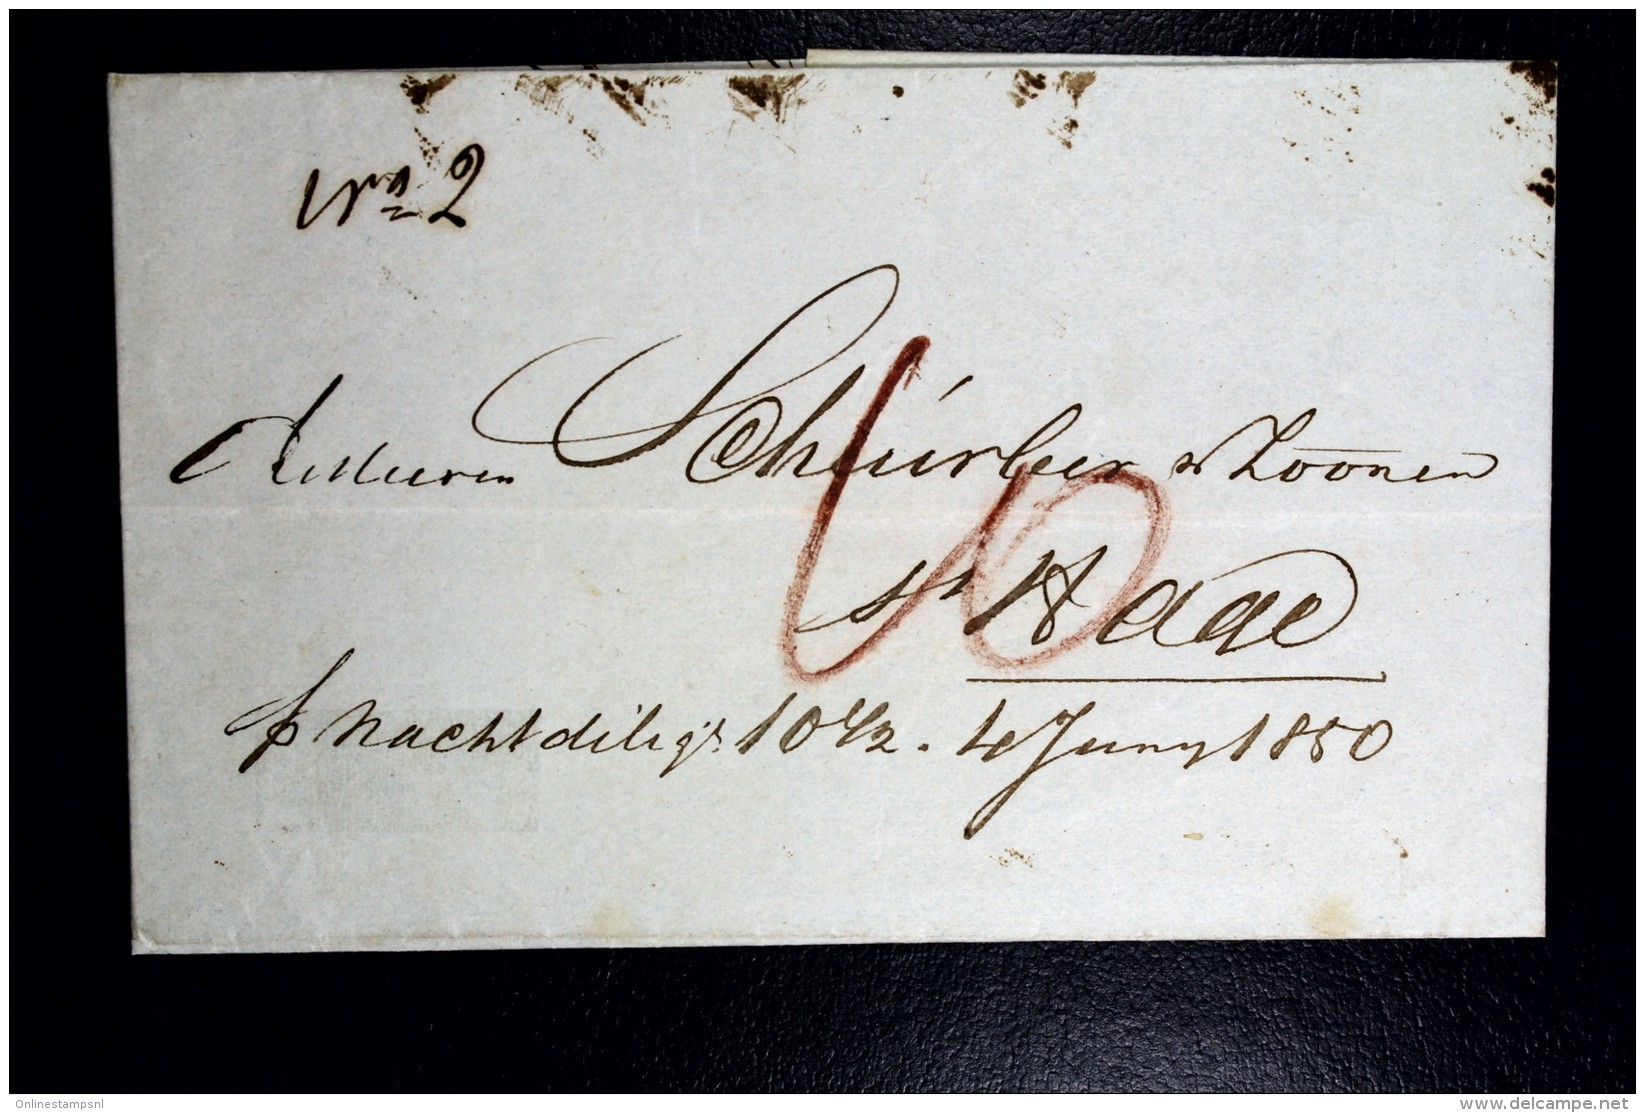 No 2
de Heeren Scheurleer & Zoonen
'sHage
p nachtdilig: 10 1/2. 4 Juny 1850
Onlinestampsnl
https://www.delcampe.net